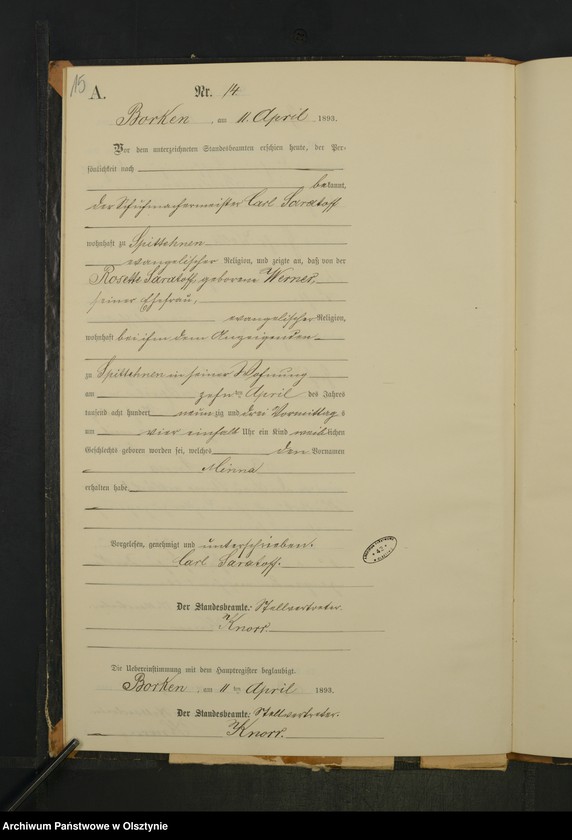 15
A.
Nr. 14
Borken, am 11. April 1893.
Vor dem unterzeichneten Standesbeamten erschien heute, der Per-
sönlichkeit nach
bekannt,
der Schuhmachermeister Carl Saratoff
wohnhaft zu Spittehnen
evangelischer Religion, und zeigte an, daß von der
Rosette Saratoff, geborene Werner,
seiner Ehefrau,
evangelischer Religion,
wohnhaft bei ihm dem Anzeigenden
zu Spittehnen in seiner Wohnung
am zehnten April des Jahres
tausend acht hundert neunzig und drei Vormittags
um vier einhalb Uhr ein Kind weiblichen
Geschlechts geboren worden sei, welches den Vornamen
Minna
erhalten habe.
Vorgelesen, genehmigt und unterschrieben.
Carl Saratoff.
Der Standesbeamte. Stellvertreter.
Knorr.
Die Uebereinstimmung mit dem Hauptregister beglaubigt.
Borken, am 11ten April 1893.
Der Standesbeamte. Stellvertreter.
Knorr.
Archiwum Państwowe w Olsztynie